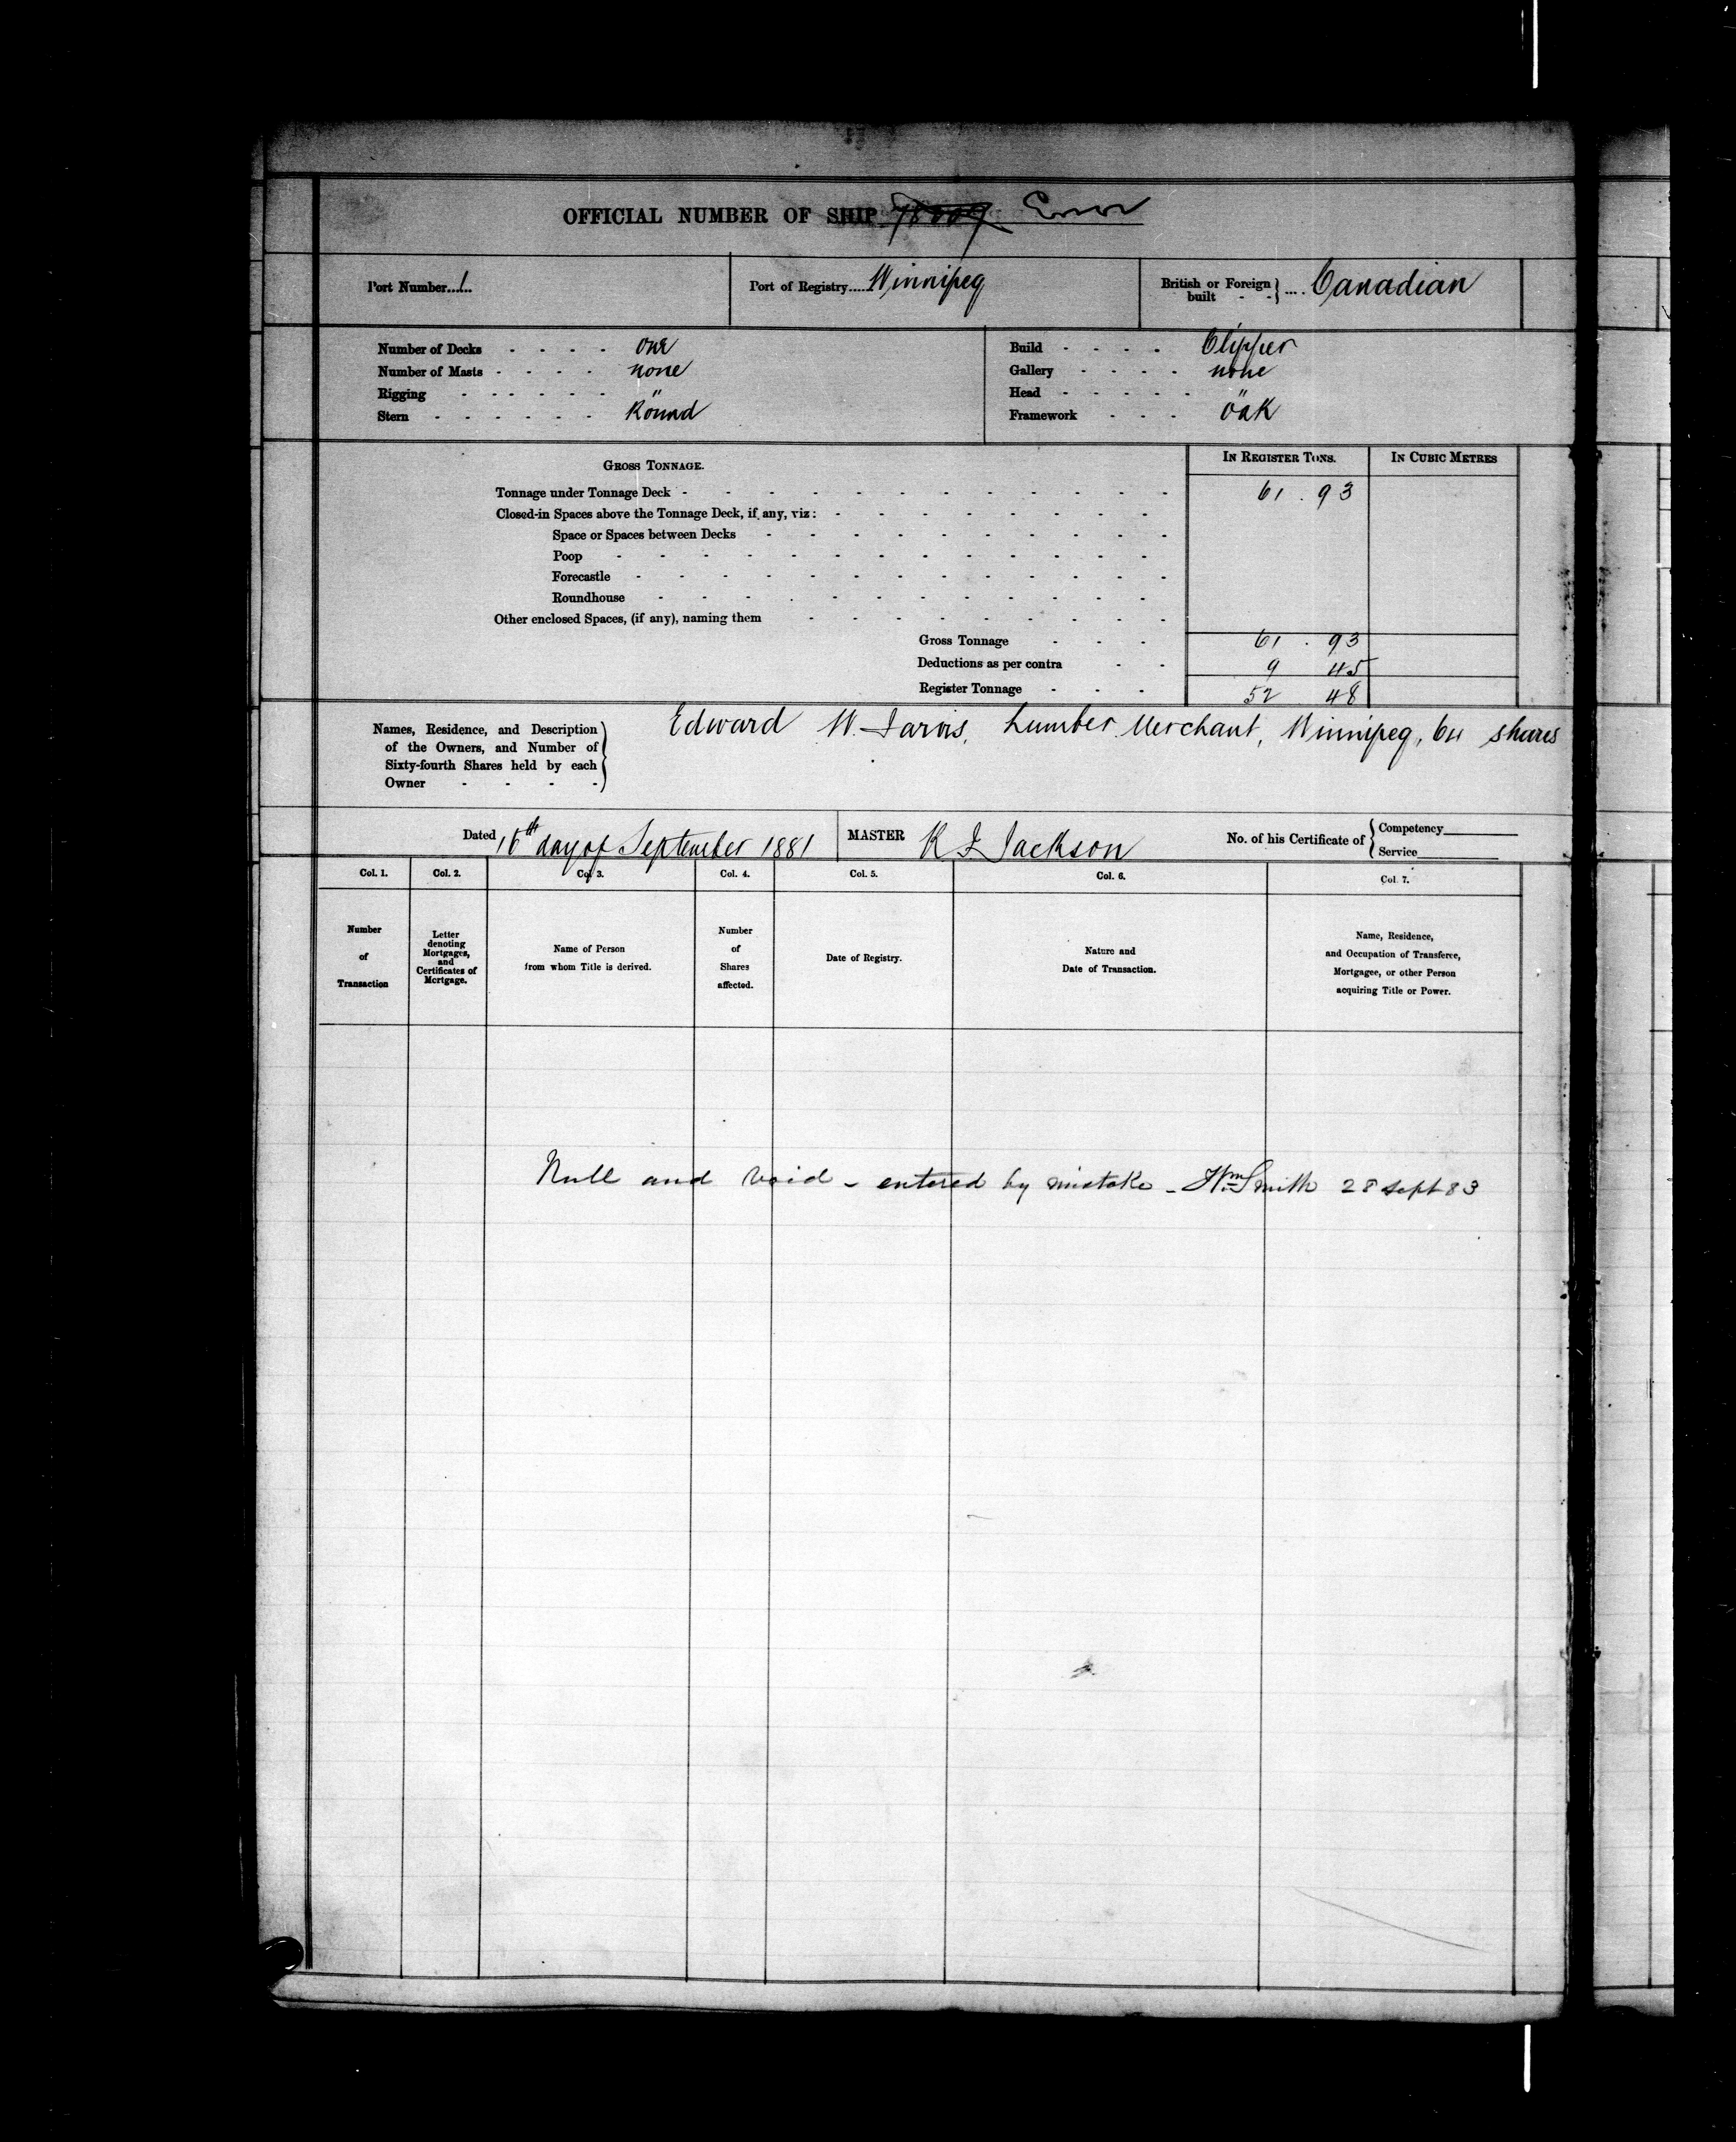 OFFICIAL NUMBER OF SHIP Error
Port Number......1. Port of Registry.....Winnipeg British or Foreign built - - } .... Canadian
Number of Decks - - - - one
Number of Masts - - - - none
Rigging - - - - - - "
Stern - - - - - - Round
Build - - - - Clipper
Gallery - - - - none
Head - - - - - "
Framework - - - oak
GROSS TONNAGE. IN REGISTER TONS. IN CUBIC METRES
Tonnage under Tonnage Deck - 61 . 93
Closed-in Spaces above the Tonnage Deck, if any, viz :
Space or Spaces between Decks
Poop
Forecastle
Roundhouse
Other enclosed Spaces, (if any), naming them
Gross Tonnage - - - 61 . 93
Deductions as per contra - - 9 45
Register Tonnage - - - 52 48
Names, Residence, and Description
of the Owners, and Number of
Sixty-fourth Shares held by each
Owner - - - -
Edward W. Jarvis, Lumber Merchant, Winnipeg, 64 shares
Dated 16th day of September 1881 MASTER K F Jackson No. of his Certificate of { Competency
Service
Col. 1. Col. 2. Col 3. Col. 4. Col. 5. Col. 6. Col. 7.
Number
of
Transaction
Letter
denoting
Mortgages,
and
Certificates of
Mortgage.
Name of Person
from whom Title is derived.
Number
of
Shares
affected.
Date of Registry.
Nature and
Date of Transaction.
Name, Residence,
and Occupation of Transferee,
Mortgagee, or other Person
acquiring Title or Power.
Null and void - entered by mistake - Wm Smith 28 Sept 83